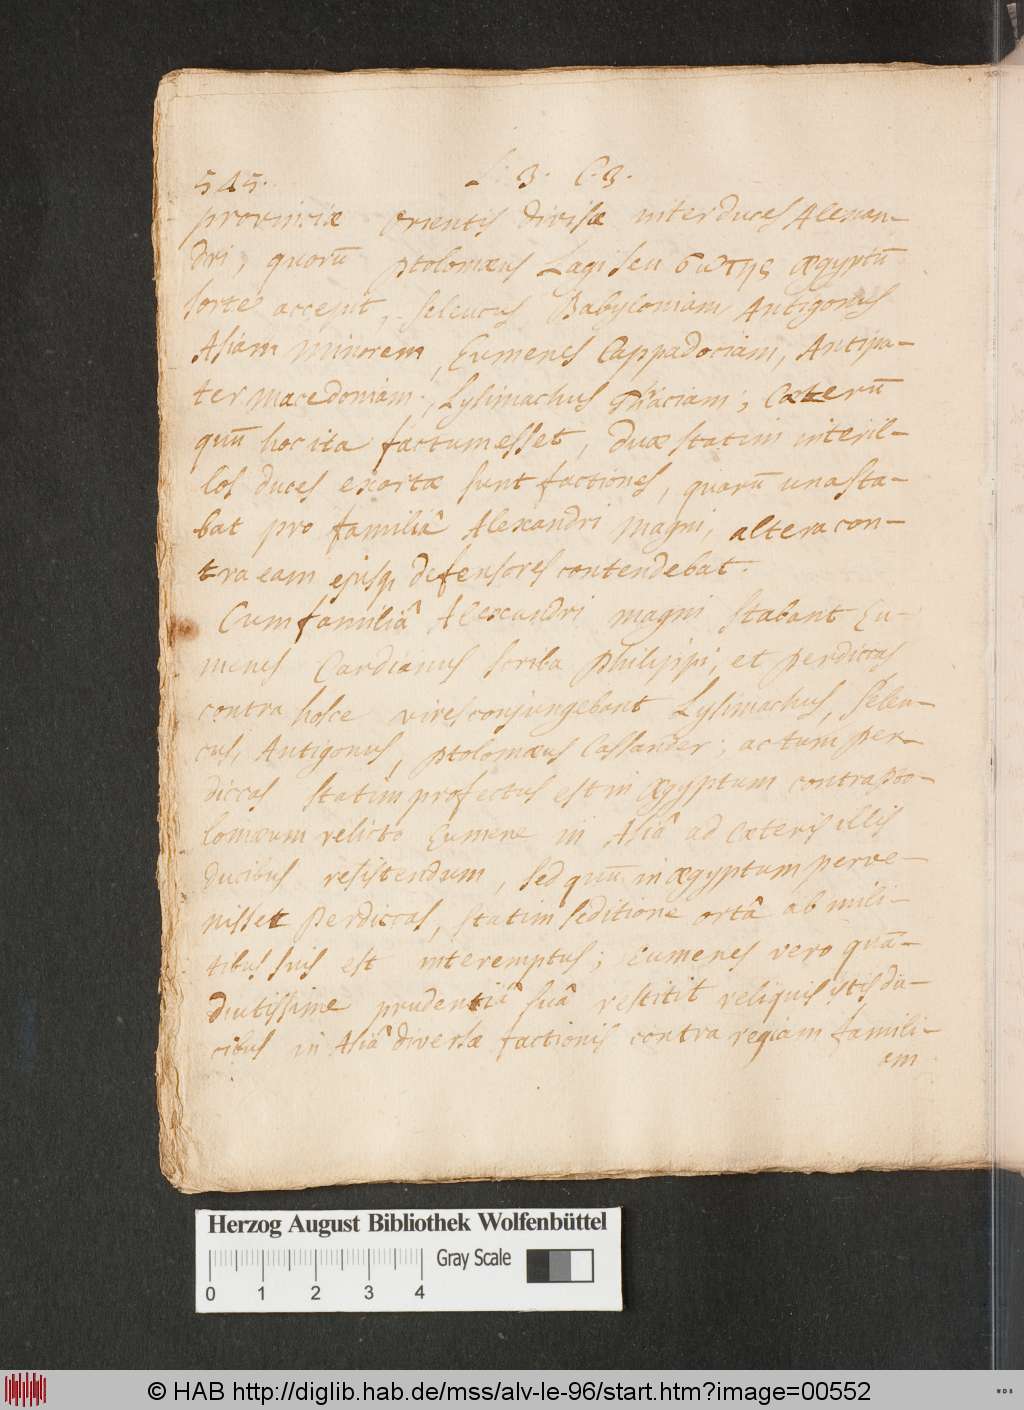 545. L. 3. C. 3.
provinciæ orientis divisæ inter duces Alexan-
dri, quorū ptolomæus Lagi seu σωτης ægyptū
sorte accepit, seleucus Babyloniam, Antigonus
Asiam minorem, Eumenes Cappadociam, Antipa-
ter macedoniam, Lysimachus Thraciam; Cæterū
quū hoc ita factum esset, duæ statim inter il-
los duces exortæ sunt factiones, quarū una sta-
bat pro familiâ Alexandri magni, altera con-
tra eam ejusq defensores contendebat.
Cum familiâ Alexandri magni stabant Eu-
menes Cardianus scriba philippi, et perdiccas
contra hosce vires conjungebant Lysimachus, Seleu-
cus, Antigonus, ptolomæus Cassander; actum per-
diccas statim profectus est in Ægyptum contra pto-
lomæum relicto Eumene in Asiâ ad cæteris illis
ducibus resistendum, sed quū in ægyptum perve-
nisset perdiccas, statim seditione ortâ ab mili-
tibus suis est interemptus; Eumenes vero quā-
diutissime prudentiâ suâ restitit reliquis istis du-
cibus in Asiâ diversæ factionis contra regiam famili-
am
Herzog August Bibliothek Wolfenbüttel
0 1 2 3 4 Gray Scale
© HAB http://diglib.hab.de/mss/alv-le-96/start.htm?image=00552